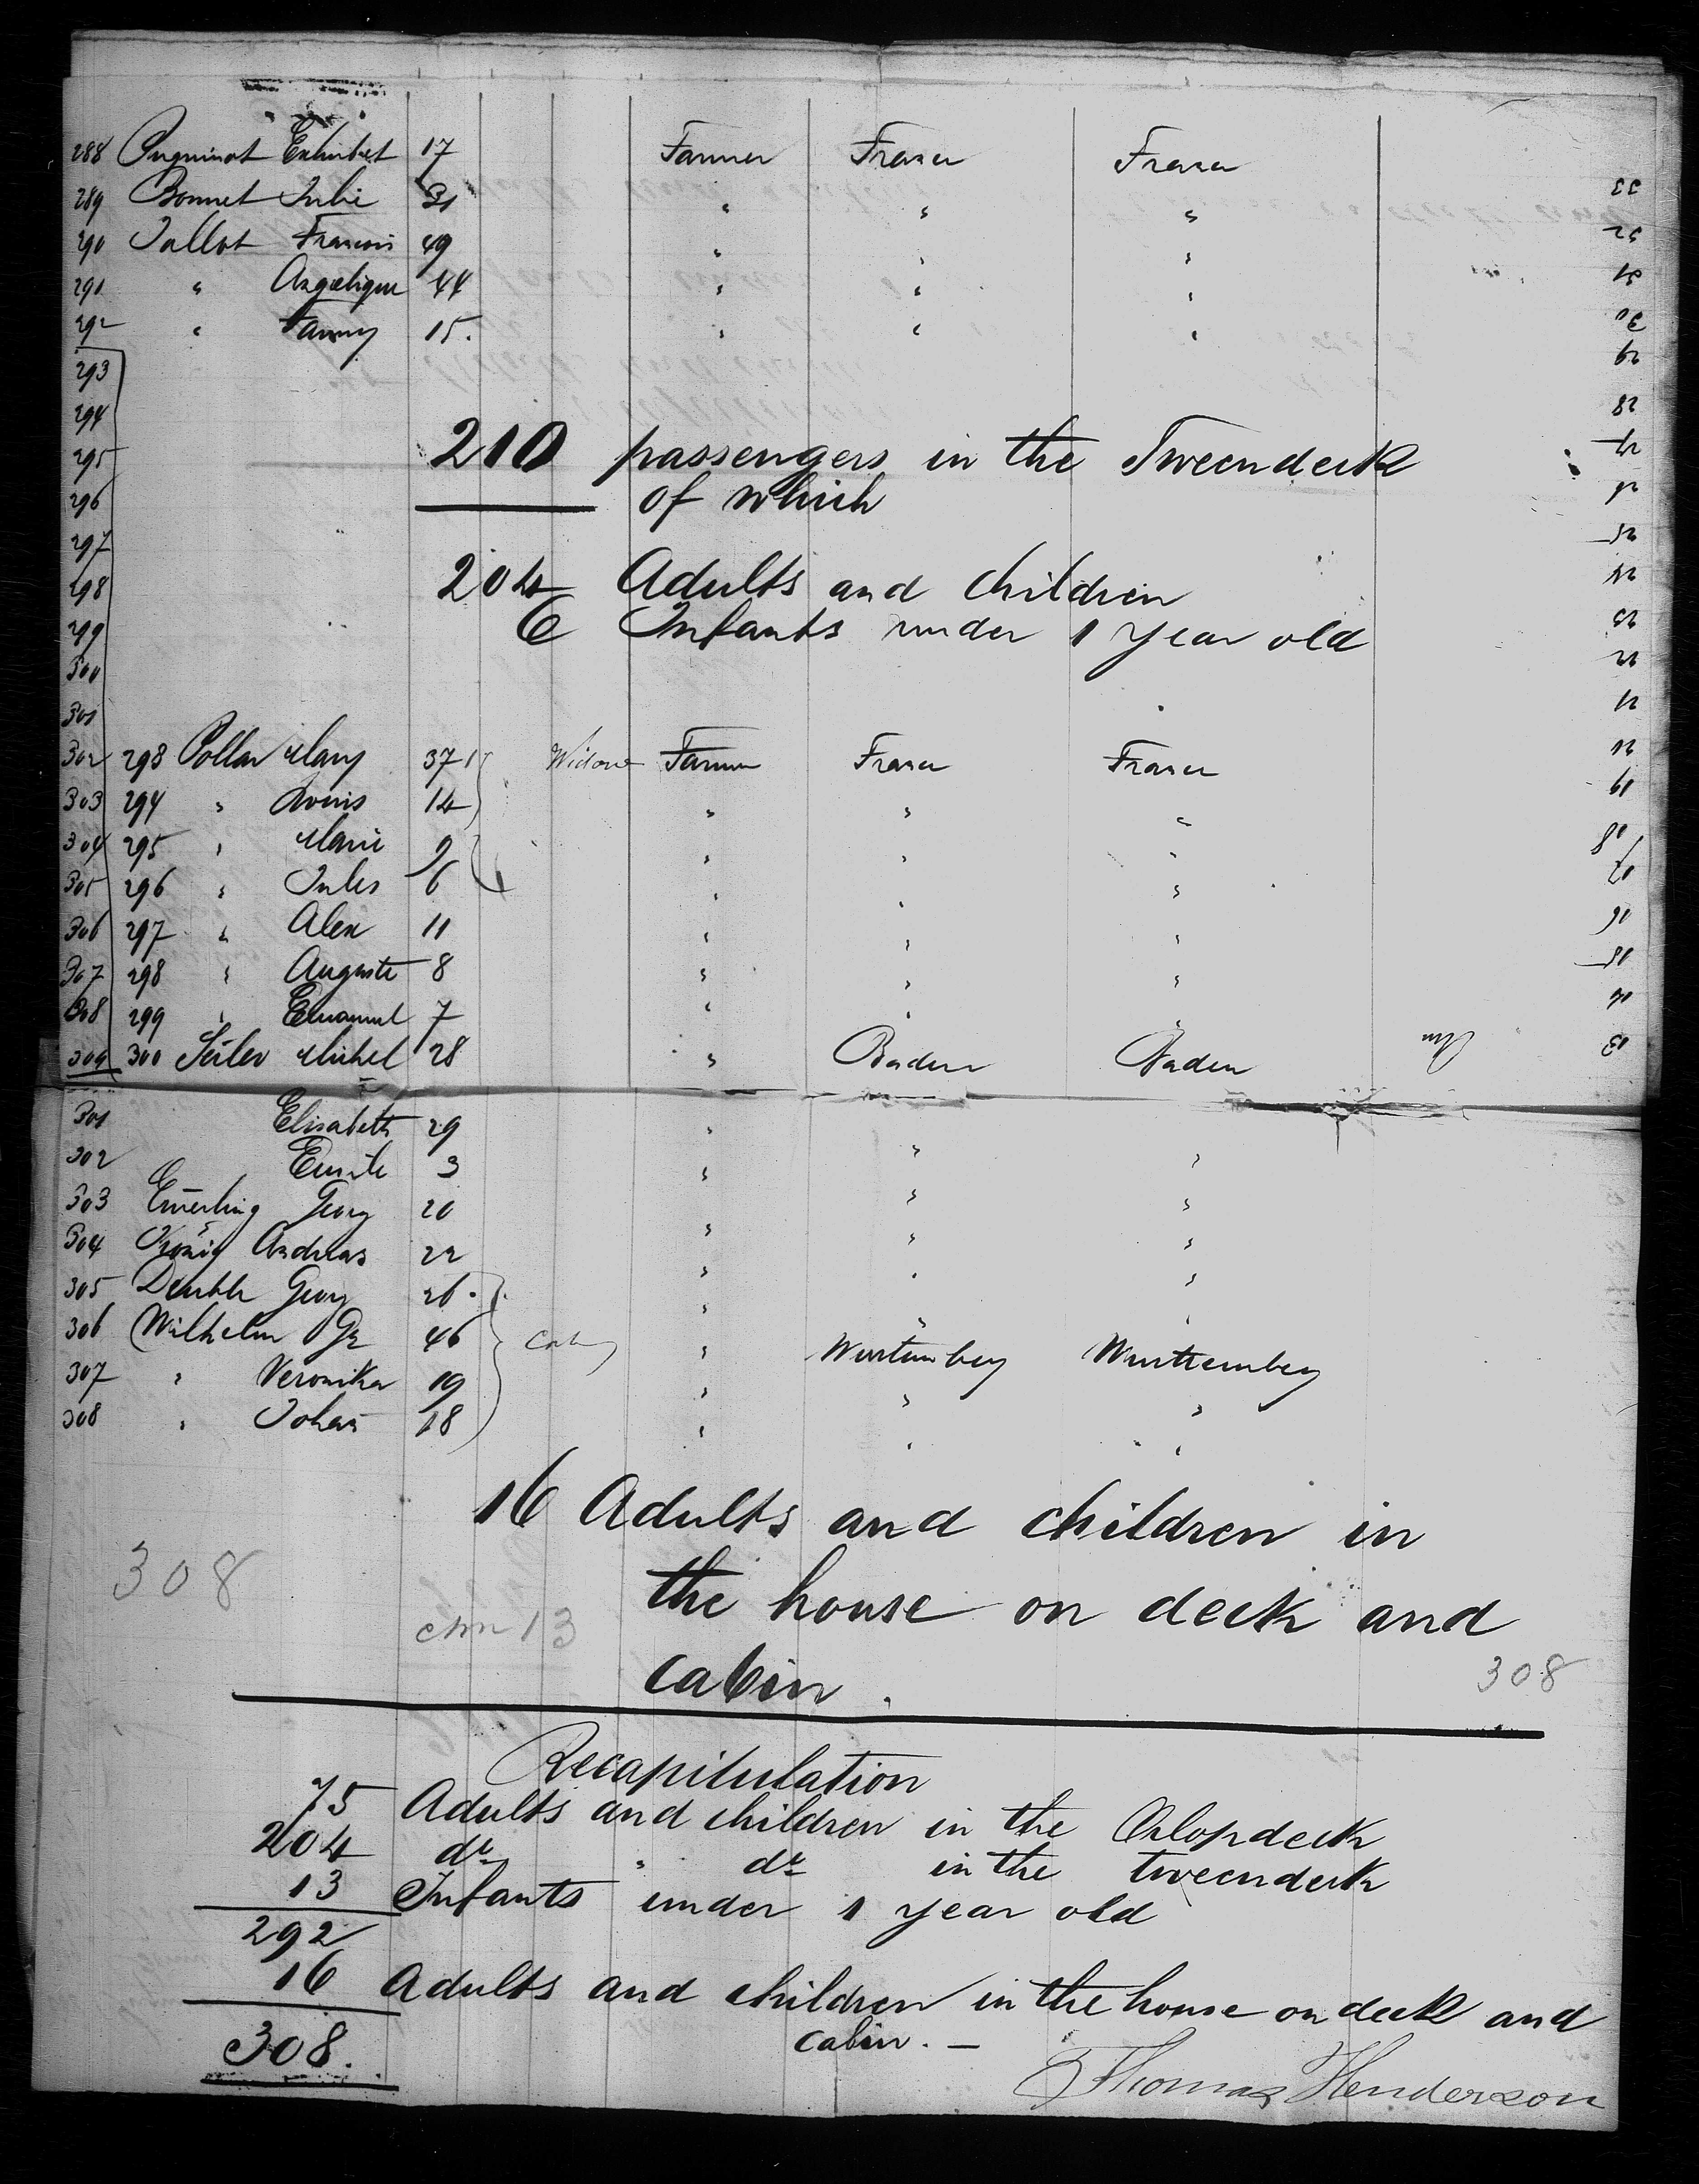 288 Exhubert 17 Farmer France France
289 Bonnet Julie 31 " " "
290 Jallot Francois 49 " " "
291 " Angelique 44 " " "
292 " Fanny 15. " " "
293
294
210 passengers in the Tweendeck
295
296 of which
297
298 204 Adults and children
299 6 Infants under 1 year old
300
301
302 293 Pollar Mary 37 Widow Farmer France France
303 294 " Louis 14 " " "
304 295 " Marie 9 " " "
305 296 " Jules 6 " " "
306 297 " Alex 11 " " "
307 298 " Auguste 8 " " "
308 299 " Emanuel 7 " " "
309 300 Seiler Michel 28 " Baden Baden
301 Elisabeth 29 " " "
302 Emile 3 " " "
303 Emerling Georg 20 " " "
304 König Andreas 22 " " "
305 Georg 26. " " "
306 Wilhelm 46 " Wurtemberg Wurttemberg
307 " Veronika 19 " " "
308 " Johan 18 " " "
16 Adults and children in
308 the house on deck and
chn 13
cabin. 308
Recapitulation
75 Adults and children in the Orlopdeck
204 do " do in the tweendeck
13 Infants under 1 year old
292
16 Adults and children in the house on deck and
cabin. —
308.
Thomas Henderson